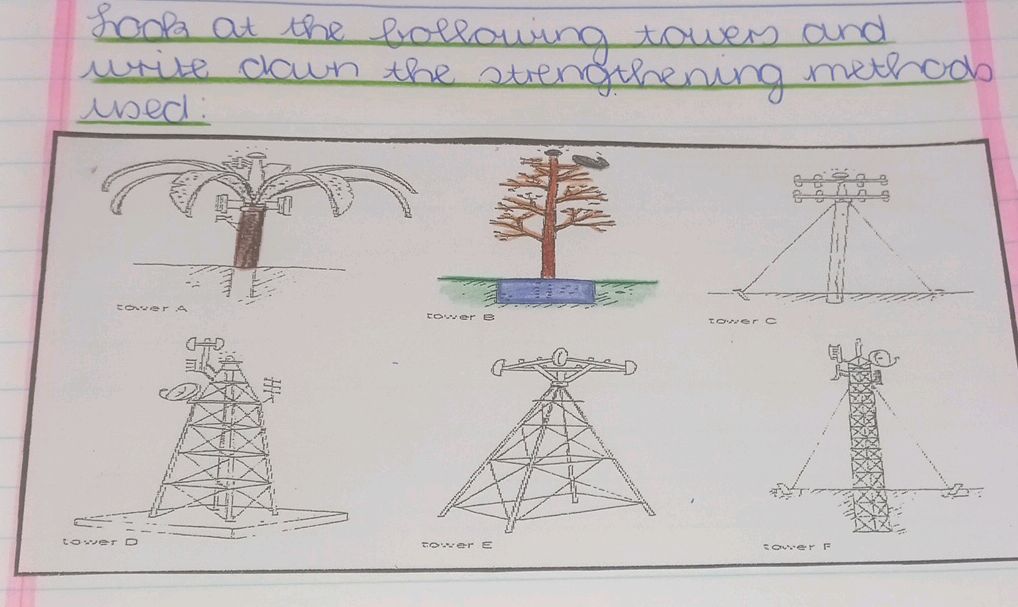 Look at the following towers and
write down the strengthening methods
used:
tower A
tower B
tower C
tower D
tower E
tower F